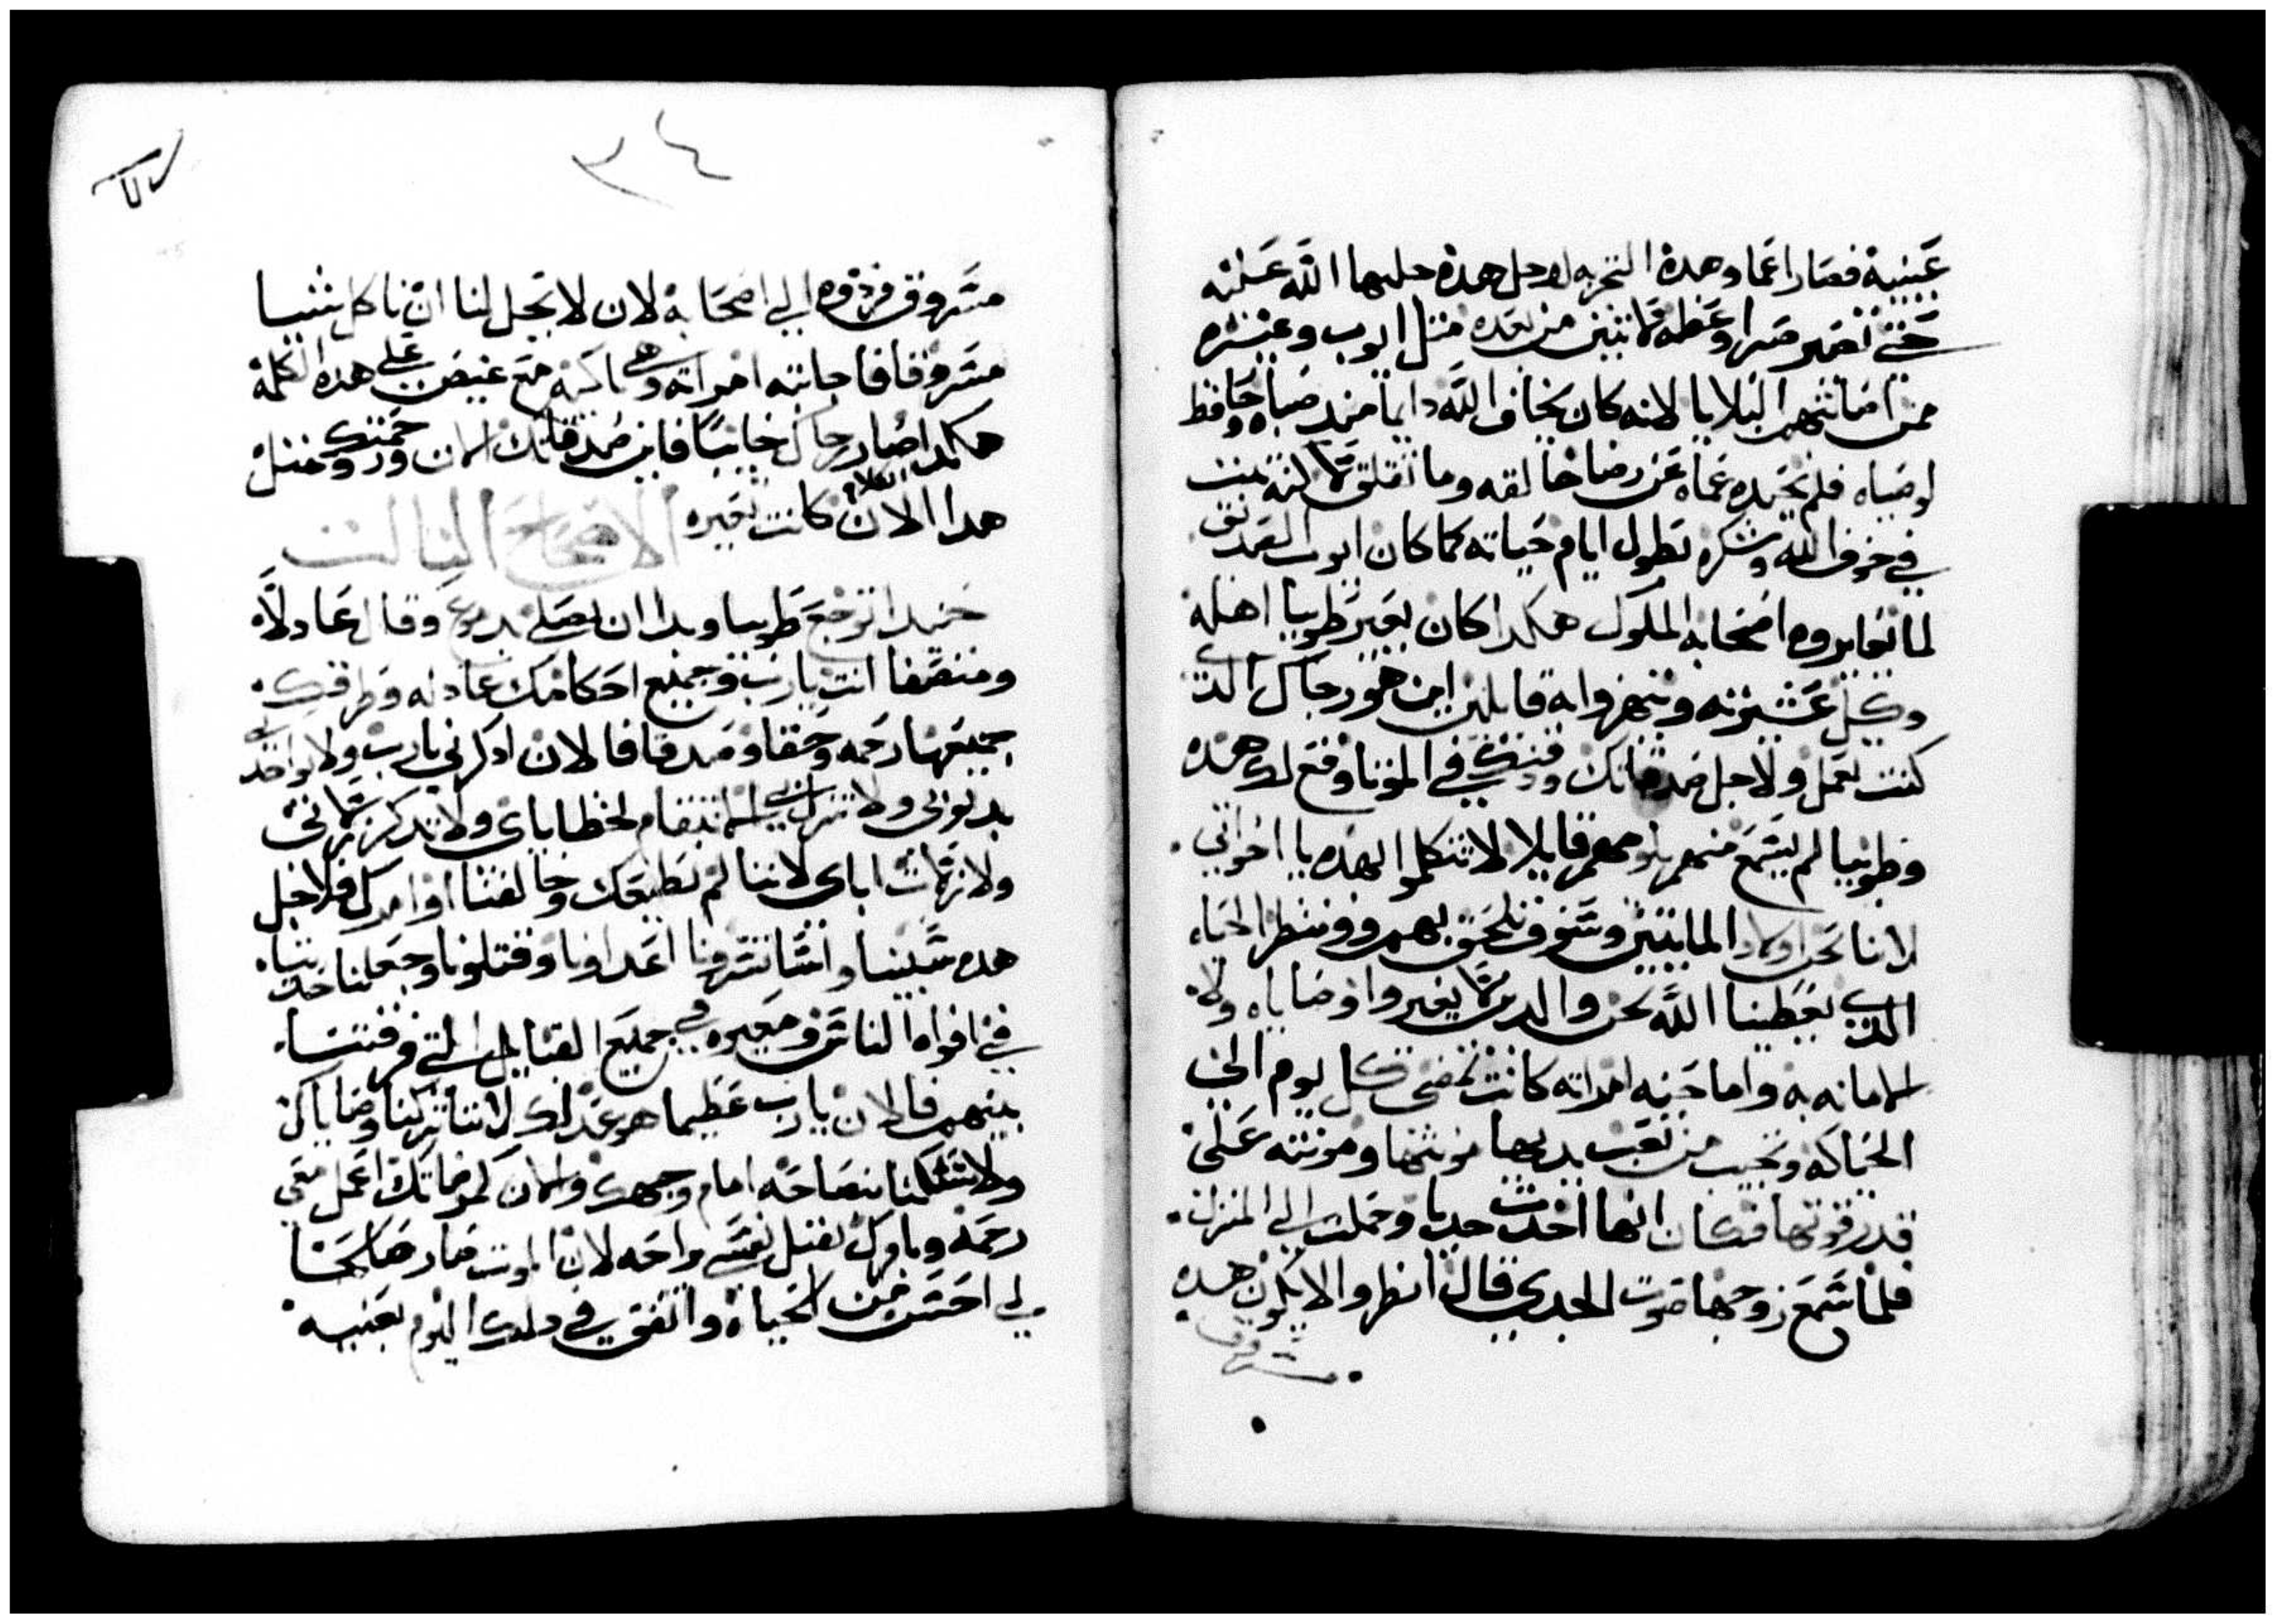 عينيه فصار اعما وهده التجربه لاجل هده جلبها الله عليه
حتي تصير صبرا وعظه للاتيين من بعده متل ايوب وغيره
من اصابتهم البلايا لانه كان يخاف الله دايما مند صباه وحافظ
لوصياه فلم يحيده عماه عن رضا خالقه وما تقلق لاكنه تبت
في خوف الله وشكره بطول ايام حياته كما كان ايوب الصديق
لما تعايروه اصحابه الملوك هكدا كان يعير طوبيا اهله
وكل عشيرته ويتهزوا به قايلين اين هو رجاك الدي
كنت تعمل ولاجل صدقاتك ودفنك في الموتا وقع لك هده
وطوبيا لم يسمع منهم بل وبخهم قايلا لا تتكلموا بهده يا اخواتي
لاننا نحن اولاد المايتين وسوف نلحق بهم وننتظر الحياه
الدي يعطينا الله نحن والدين لا يغيروا اوصاياه ولا
الامانه به واما حنه امراته كانت تمضي كل يوم الي
الحياكه وتجيب من تعب يديها مونتها ومونته علي
قدر قوتها فكان انها اخدت جديا وحملت الي المنزل
فلما سمع زوجها صوت الجدي قال انظروا لا يكون هده
مسروق
٣٤
مسروق فردوه الي اصحابه لان لا يحل لنا ان ناكل شيا
مسروقا فاجابته امراته وهي باكيه مع غيض علي هده الكلمة
هكدا صار رجاك خايبا فاين صدقاتك الان ورحمتك ومتل
هدا الكلام الان كانت تعيره الاصحاح التالت
حينيدا توجع طوبيا وبدا ان يصلي بدموع وقال عادلا
ومنصفا انت يارب وجميع احكامك عادله وطرقك
جميعها رحمه وحقا وصدقا فالان ادكرني يارب ولا تواخدني
بدنوبي ولا تنزل بي الانتقام لخطاياي ولا تدكر زلاتي
ولا زلات اباي لاننا لم نطيعك وخالفنا اوامرك فلاجل
هده سبينا واستاسرونا اعداونا وقتلونا وجعلنا حديتا
في افواه الناس ومعيره في جميع القبايل التي فرقتنا
بينهم فالان يارب عظيما هو عدلك لاننا تركنا وصاياك
ولا سلكنا بنصاحه امام وجهك والان كمرضاتك اعمل معي
رحمه وبامرك تقبل نفسي براحه لان الموت صار صالحا
لي احسن من الحياه واتفق في دلك اليوم بعينيه